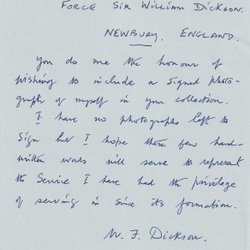 FORCE SIR WILLIAM DICKSON.
NEWBURY, ENGLAND.
You do me the honour of
wishing to include a signed photo-
graph of myself in your collection.
I have no photographs left to
sign but I hope these few hand-
written words will serve to represent
the Service I have had the privilege
of serving in since its formation.
W. F. Dickson.